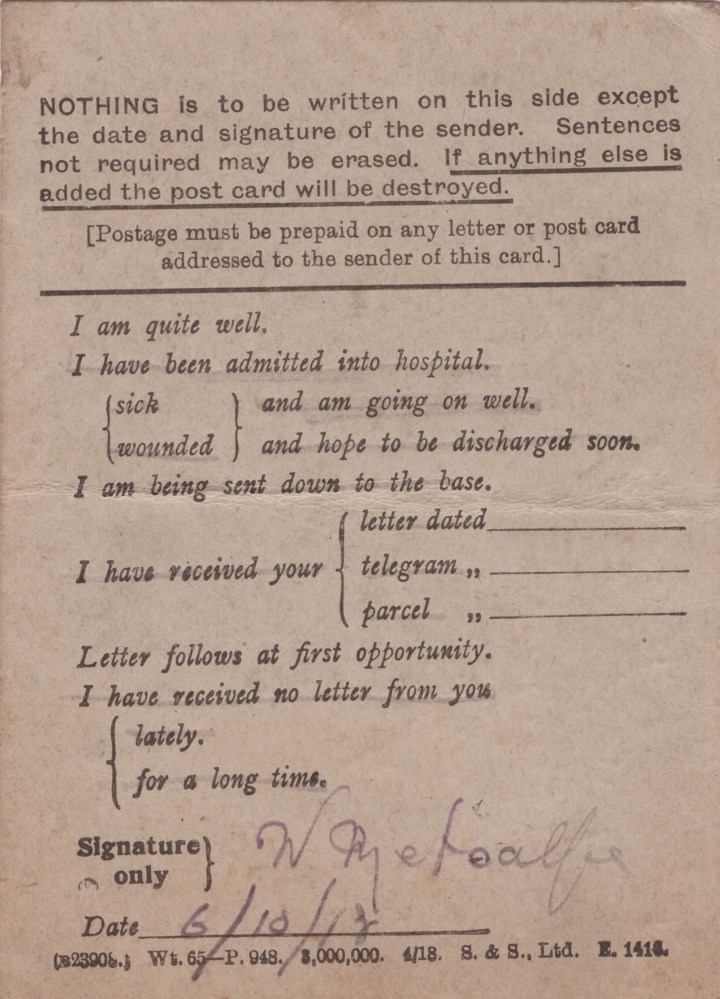 NOTHING is to be written on this side except
the date and signature of the sender. Sentences
not required may be erased. If anything else is
added the post card will be destroyed.
[Postage must be prepaid on any letter or post card
addressed to the sender of this card.]
I am quite well.
I have been admitted into hospital.
sick and am going on well.
wounded and hope to be discharged soon.
I am being sent down to the base.
letter dated
I have received your telegram „
parcel „
Letter follows at first opportunity.
I have received no letter from you
lately.
for a long time.
Signature
only
W Metcalfe
Date 6/10/18
Wt. 65—P. 948. 3,000,000. 4/18. S. & S., Ltd.